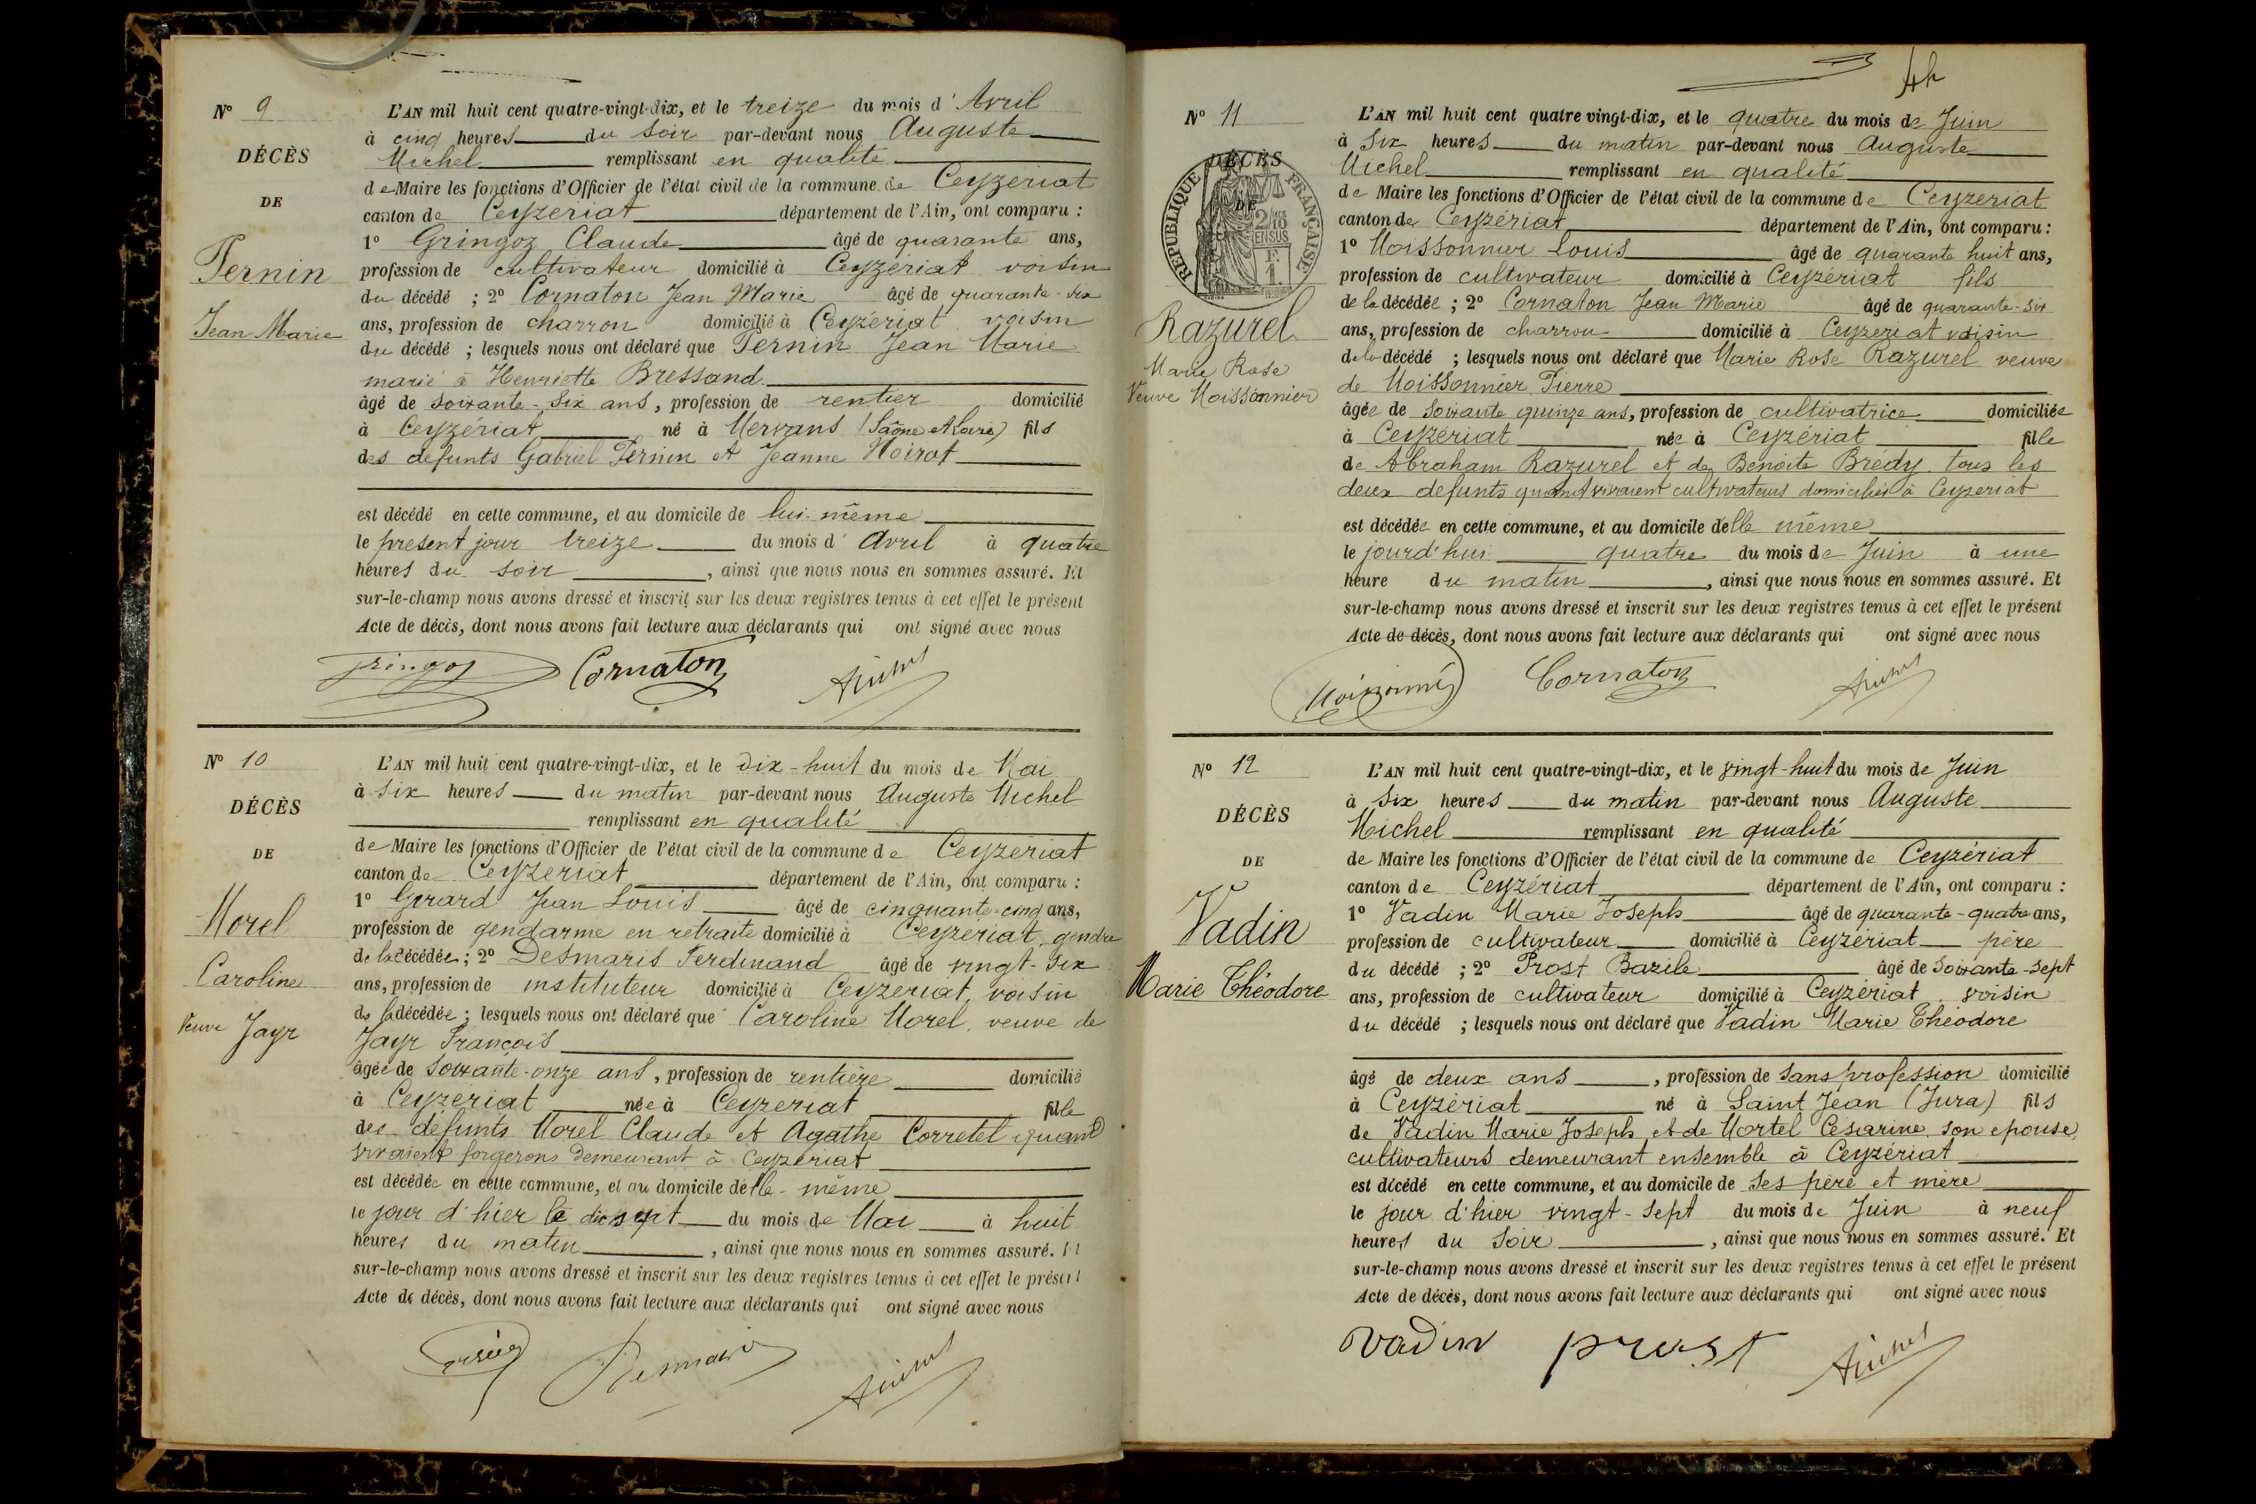 Nº 9
DÉCÈS
DE
Pernin
Jean Marie
L'AN mil huit cent quatre-vingt-dix, et le treize du mois d'Avril
à cinq heures du soir par-devant nous Auguste
Michel remplissant en qualité
de Maire les fonctions d'Officier de l'état civil de la commune de Ceyzériat
canton de Ceyzériat département de l'Ain, ont comparu :
1º Gringoz Claude âgé de quarante ans,
profession de cultivateur domicilié à Ceyzériat voisin
du décédé ; 2º Cornaton Jean Marie âgé de quarante-six
ans, profession de charron domicilié à Ceyzériat voisin
du décédé ; lesquels nous ont déclaré que Pernin Jean Marie
marié à Henriette Bressand
âgé de soixante-six ans, profession de rentier domicilié
à Ceyzériat né à Mervans (Saône et Loire) fils
des défunts Gabriel Pernin et Jeanne Noirot
est décédé en cette commune, et au domicile de lui-même
le présent jour treize du mois d'Avril à quatre
heures du soir, ainsi que nous nous en sommes assuré. Et
sur-le-champ nous avons dressé et inscrit sur les deux registres tenus à cet effet le présent
Acte de décès, dont nous avons fait lecture aux déclarants qui ont signé avec nous
Gringoz Cornaton AMichel
Nº 10
DÉCÈS
DE
Morel
Caroline
Veuve Jayr
L'AN mil huit cent quatre-vingt-dix, et le dix-huit du mois de Mai
à six heures du matin par-devant nous Auguste Michel
remplissant en qualité
de Maire les fonctions d'Officier de l'état civil de la commune de Ceyzériat
canton de Ceyzériat département de l'Ain, ont comparu :
1º Girard Jean Louis âgé de cinquante-cinq ans,
profession de gendarme en retraite domicilié à Ceyzériat, gendre
de la décédée ; 2º Desmaris Ferdinand âgé de vingt-six
ans, profession de instituteur domicilié à Ceyzériat, voisin
de la décédée ; lesquels nous ont déclaré que Caroline Morel, veuve de
Jayr François
âgée de soixante-onze ans, profession de rentière domicilié
à Ceyzériat née à Ceyzériat fille
des défunts Morel Claude et Agathe Corretel quand
vivaient forgerons demeurant à Ceyzériat
est décédée en cette commune, et au domicile d'elle-même
le jour d'hier le dix sept du mois de Mai à huit
heures du matin, ainsi que nous nous en sommes assuré. Et
sur-le-champ nous avons dressé et inscrit sur les deux registres tenus à cet effet le présent
Acte de décès, dont nous avons fait lecture aux déclarants qui ont signé avec nous
Desmaris AMichel
Nº 11
DÉCÈS
DE
RÉPUBLIQUE FRANÇAISE
2/10 EN SUS
F. 1.
Razurel
Marie Rose
Veuve Moissonnier
L'AN mil huit cent quatre vingt-dix, et le quatre du mois de Juin
à six heures du matin par-devant nous Auguste
Michel remplissant en qualité
de Maire les fonctions d'Officier de l'état civil de la commune de Ceyzériat
canton de Ceyzériat département de l'Ain, ont comparu :
1º Moissonnier Louis âgé de quarante huit ans,
profession de cultivateur domicilié à Ceyzériat fils
de la décédée ; 2º Cornaton Jean Marie âgé de quarante-six
ans, profession de charron domicilié à Ceyzériat voisin
de la décédé ; lesquels nous ont déclaré que Marie Rose Razurel veuve
de Moissonnier Pierre
âgée de soixante quinze ans, profession de cultivatrice domiciliée
à Ceyzériat née à Ceyzériat fille
de Abraham Razurel et de Benoite Brédy tous les
deux défunts quand vivaient cultivateurs domiciliés à Ceyzeriat
est décédée en cette commune, et au domicile d'elle même
le jourd'hui quatre du mois de Juin à une
heure du matin, ainsi que nous nous en sommes assuré. Et
sur-le-champ nous avons dressé et inscrit sur les deux registres tenus à cet effet le présent
Acte de décès, dont nous avons fait lecture aux déclarants qui ont signé avec nous
Moissonnié Cornaton AMichel
Nº 12
DÉCÈS
DE
Vadin
Marie Théodore
L'AN mil huit cent quatre-vingt-dix, et le vingt-huit du mois de Juin
à six heures du matin par-devant nous Auguste
Michel remplissant en qualité
de Maire les fonctions d'Officier de l'état civil de la commune de Ceyzériat
canton de Ceyzériat département de l'Ain, ont comparu :
1º Vadin Marie Joseph âgé de quarante-quatre ans,
profession de cultivateur domicilié à Ceyzériat père
du décédé ; 2º Prost Bazile âgé de soixante-sept
ans, profession de cultivateur domicilié à Ceyzériat voisin
du décédé ; lesquels nous ont déclaré que Vadin Marie Théodore
âgé de deux ans, profession de sans profession domicilié
à Ceyzériat né à Saint Jean (Jura) fils
de Vadin Marie Joseph et de Mortel Césarine son épouse,
cultivateurs demeurant ensemble à Ceyzériat
est décédé en cette commune, et au domicile de ses père et mère
le jour d'hier vingt-sept du mois de Juin à neuf
heures du soir, ainsi que nous nous en sommes assuré. Et
sur-le-champ nous avons dressé et inscrit sur les deux registres tenus à cet effet le présent
Acte de décès, dont nous avons fait lecture aux déclarants qui ont signé avec nous
Vadin prost AMichel